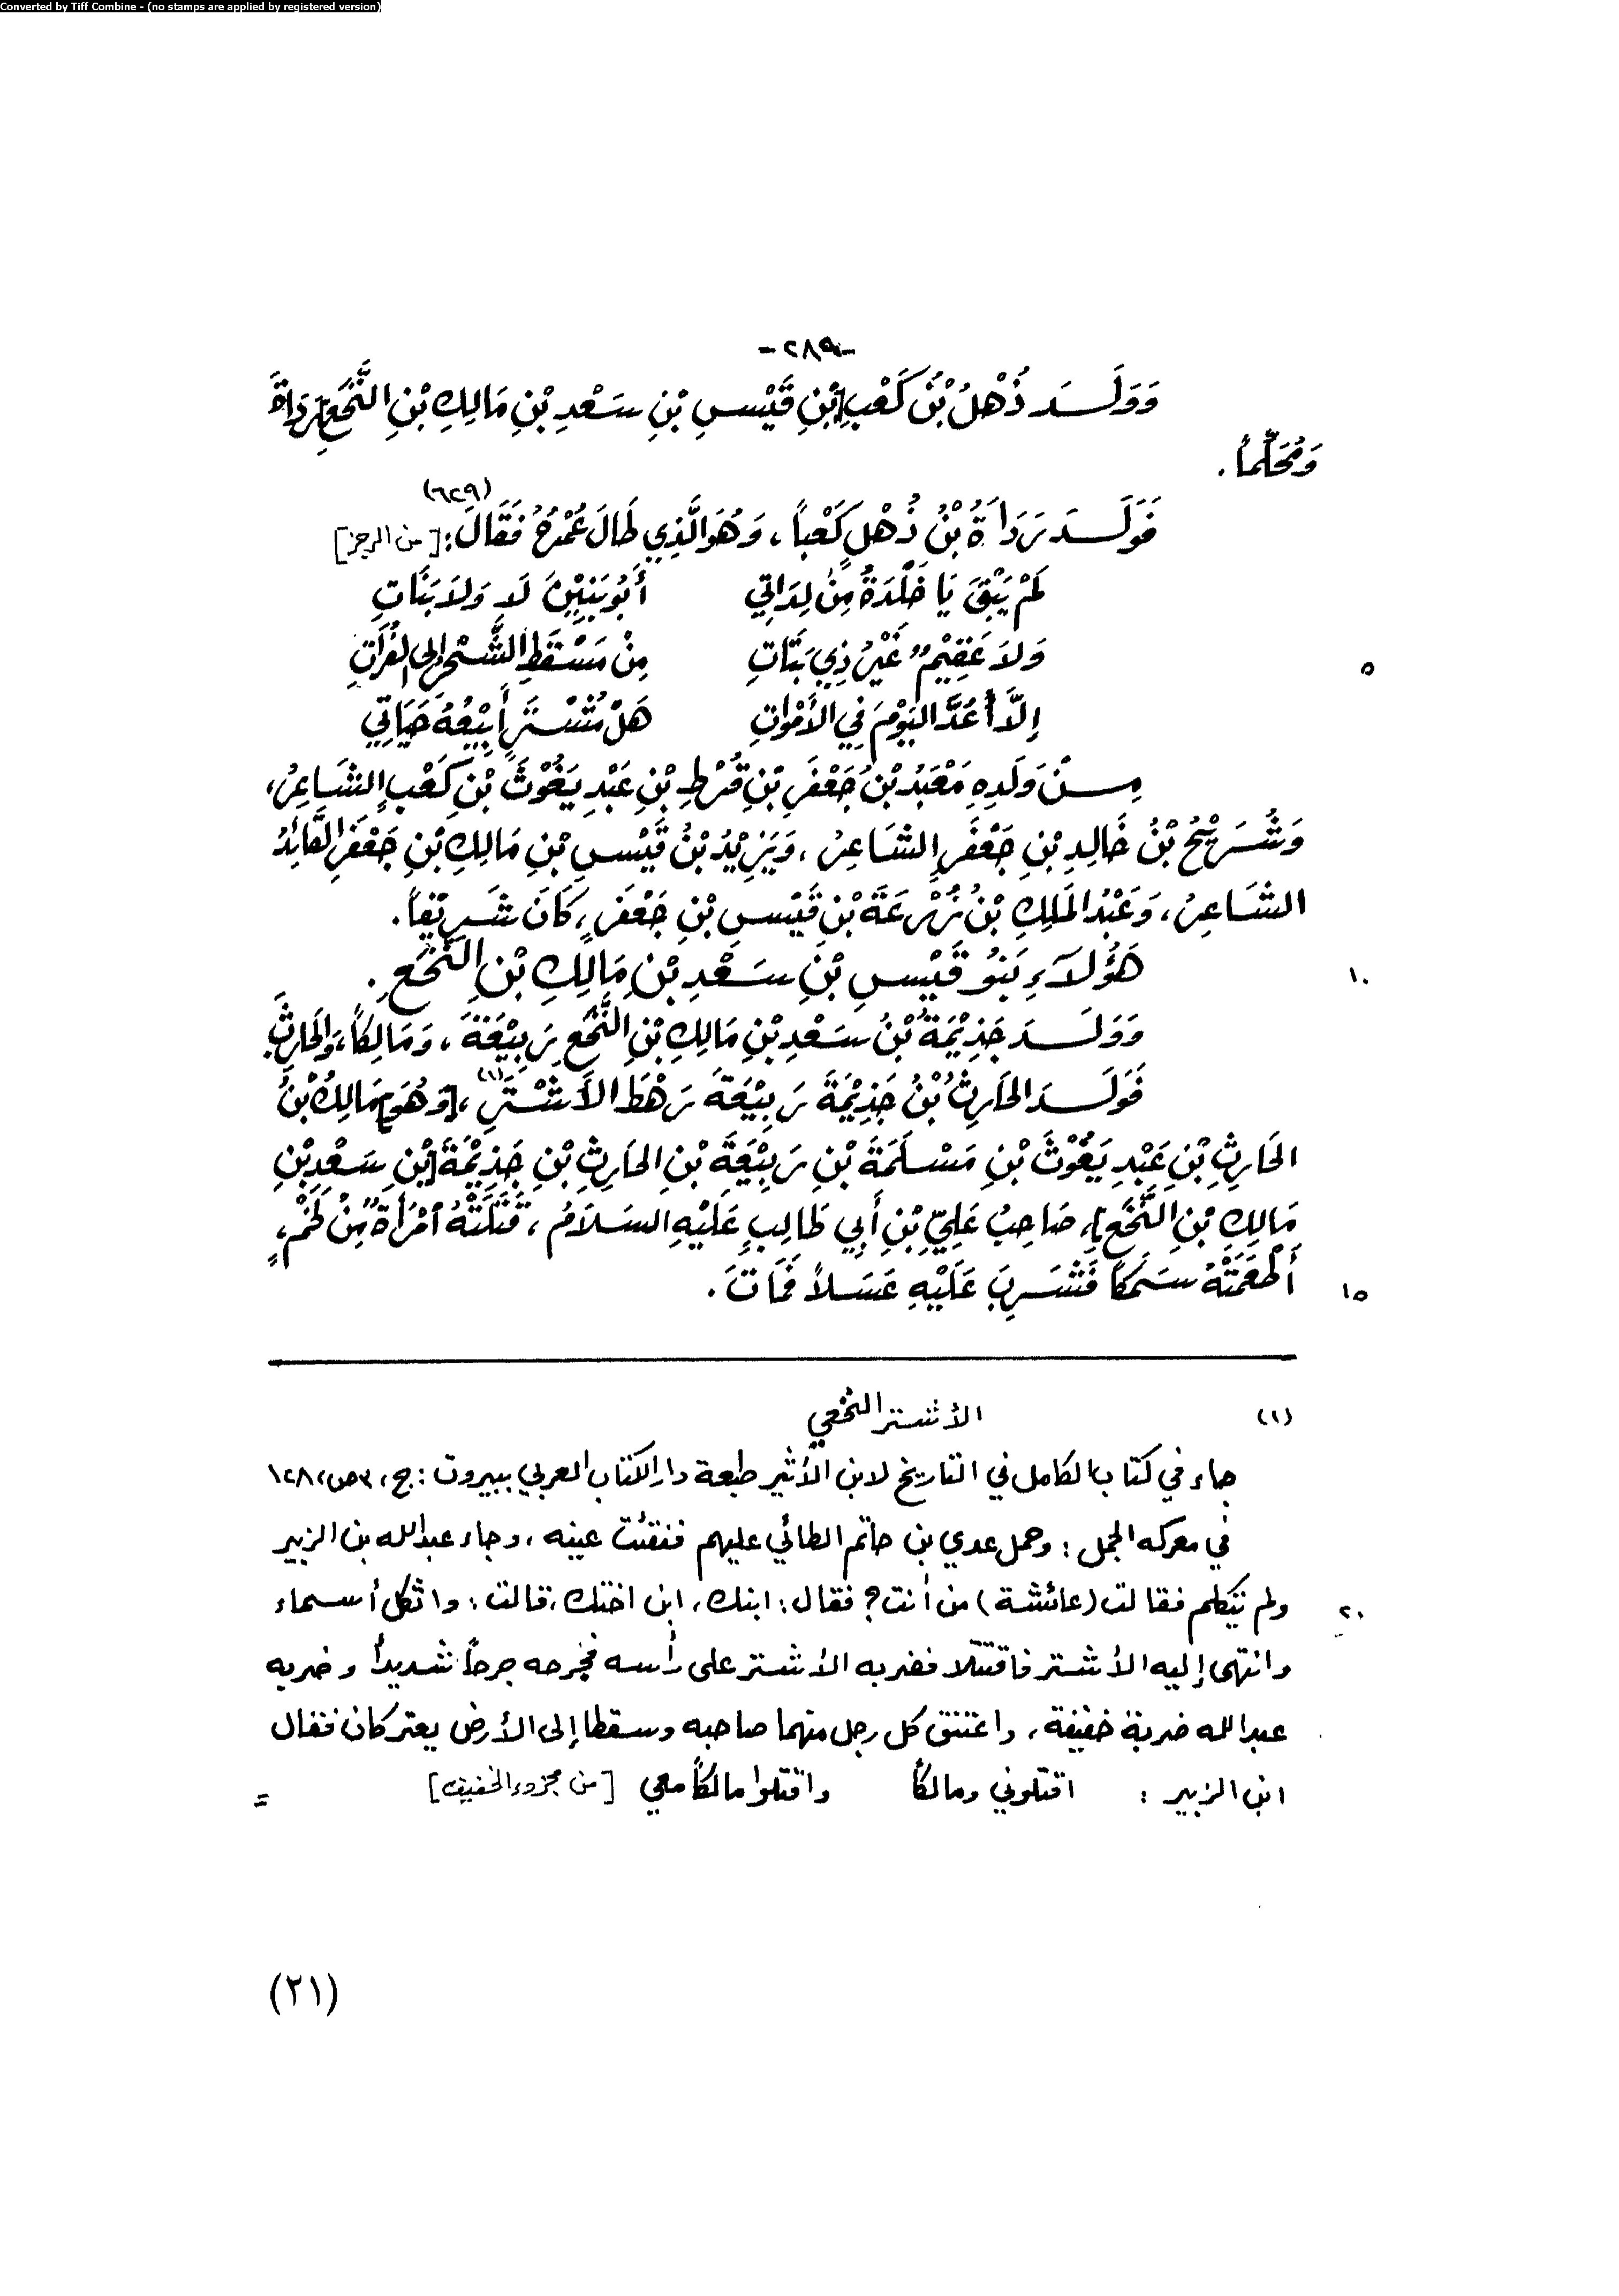 Converted by Tiff Combine - (no stamps are applied by registered version)
-٢٨٩-
وَوَلَـــدَ ذُهْلُ بْنُ كَعْبِ [بْنِ قَيْسِ بْنِ سَعْدِ بْنِ مَالِكِ بْنِ النَّخَعِ] رَدَاةَ
وَمُحَلِّماً .
(٦٢٩)
فَوَلَـــدَ رَدَاةُ بْنُ ذُهْلٍ كَعْباً ، وَهُوَ الَّذِي طَالَ عُمْرُهُ فَقَالَ : [من الرجز]
لَمْ يَبْقَ يَا خَلْدَةُ مِنْ لِدَاتِي أَبُو بَنِيْنَ لَا وَلَا بَنَاتِ
وَلَا عَقِيْمٌ غَيْرُ ذِي بَتَاتِ مِنْ مَسْقَطِ الشَّحْرِ إلى الفُرَاتِ
٥
إِلَّا أُعَدَّ اليَوْمَ فِي الأَمْوَاتِ هَلْ مُشْتَرٍ أَبِيْعُهُ حَيَاتِي
مِـــنْ وَلَدِهِ مَعْبَدُ بْنُ جَعْفَرِ بْنِ قُرْطِ بْنِ عَبْدِ يَغُوْثَ بْنِ كَعْبٍ الشَاعِرُ ،
وَشُرَيْحُ بْنُ خَالِدِ بْنِ جَعْفَرٍ الشَاعِرُ ، وَيَزِيْدُ بْنُ قَيْسِ بْنِ مَالِكِ بْنِ جَعْفَرٍ القَائِدُ
الشَاعِرُ ، وَعَبْدُ المَلِكِ بْنُ زُرْعَةَ بْنِ قَيْسِ بْنِ جَعْفَرٍ ، كَانَ شَرِيْفاً .
هَؤُلَاءِ بَنُو قَيْسِ بْنِ سَعْدِ بْنِ مَالِكِ بْنِ النَّخَعِ .
١٠
وَوَلَـــدَ جَذِيْمَةُ بْنُ سَعْدِ بْنِ مَالِكِ بْنِ النَّخَعِ رَبِيْعَةَ ، وَمَالِكاً ، وَالحَارِثَ
فَوَلَـــدَ الحَارِثُ بْنُ جَذِيْمَةَ رَبِيْعَةَ رَهْطَ الأَشْتَرِ (١) ، [وَهُوَ] مَالِكُ بْنُ
الحَارِثِ بْنِ عَبْدِ يَغُوْثَ بْنِ مَسْلَمَةَ بْنِ رَبِيْعَةَ بْنِ الحَارِثِ بْنِ جَذِيْمَةَ [بْنِ سَعْدِ بْنِ
مَالِكِ بْنِ النَّخَعِ] ، صَاحِبُ عَلِيِّ بْنِ أَبِي طَالِبٍ عَلَيْهِ السَلَامُ ، قَتَلَتْهُ امْرَأَةٌ مِنْ لَخْمٍ ،
أَطْعَمَتْهُ سَمَكاً فَشَرِبَ عَلَيْهِ عَسَلاً فَمَاتَ .
١٥
(١) الأشتر النخعي
جاء في كتاب الكامل في التاريخ لابن الأثير طبعة دار الكتاب العربي ببيروت : ج، ٣ ص، ١٢٨
في معركه الجمل : وحمل عدي بن حاتم الطائي عليهم ففقئت عينه ، وجاء عبد الله بن الزبير
ولم يتكلم فقالت (عائشة) من أنت ؟ فقال : ابنك ، ابن اختك ، قالت : واثكل أسماء
٢٠
وانتهى إليه الأشتر فاقتتلا فضربه الأشتر على رأسه فجرحه جرحاً شديداً وضربه
عبد الله ضربة خفيفة ، واعتنق كل رجل منهما صاحبه وسقطا إلى الأرض يعتركان فقال
ابن الزبير : اقتلوني ومالكاً واقتلوا مالكاً معي [من مجزوء الخفيف]
=
(٢١)